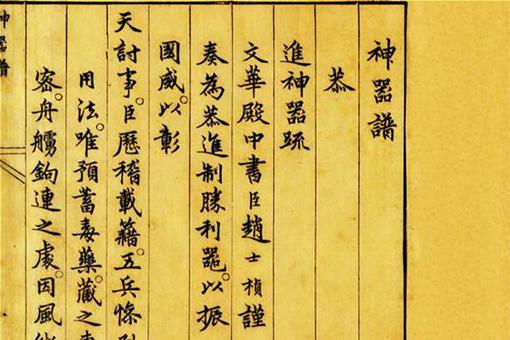 神器譜
恭
進神器疏
文華殿中書臣趙士楨謹
奏為恭進制勝利器以振
國威。以彰
天討事。臣歷稽載籍。五兵條
用法。唯預蓄毒藥。藏之
宻舟艣鉤連之處。因風
神器譜